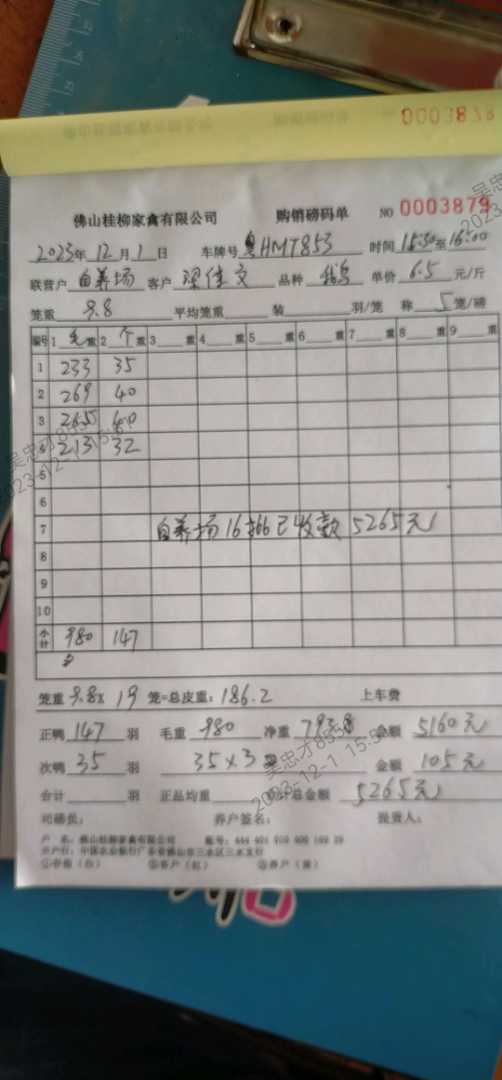 0003879
佛山桂柳家禽有限公司 购销磅码单 NO 0003879
2023年12月1日 车牌号 粤HMT853 时间 15:30至16:00
联营户 自养场 客户 梁佳文 品种 单价 6.5 元/斤
笼重 9.8 平均笼重 装 羽/笼 称 5 笼/磅
编号 1 毛重 2 个重 3 重 4 重 5 重 6 重 7 重 8 重 9 重
1 233 35
2 269 40
3 265 40
4 213 32
5
6
7 自养场16 已收款5265元
8
9
10
小计 980 147
笼重 9.8x 19 笼=总皮重:186.2 上车费
正鸭 147 羽 毛重 980 净重 793.8 金额 5160元
次鸭 35 羽 35×3 金额 105元
合计 羽 正品均重 合计总金额 5265元
司磅员: 养户签名: 提货人:
户 名:佛山桂柳家禽有限公司 账号:
开户行:中国农业银行广东省佛山市三水区三水支行
①存根(白) ②客户(红) ③养户(黄)
吴忠才8558
2023-12-1 15:5